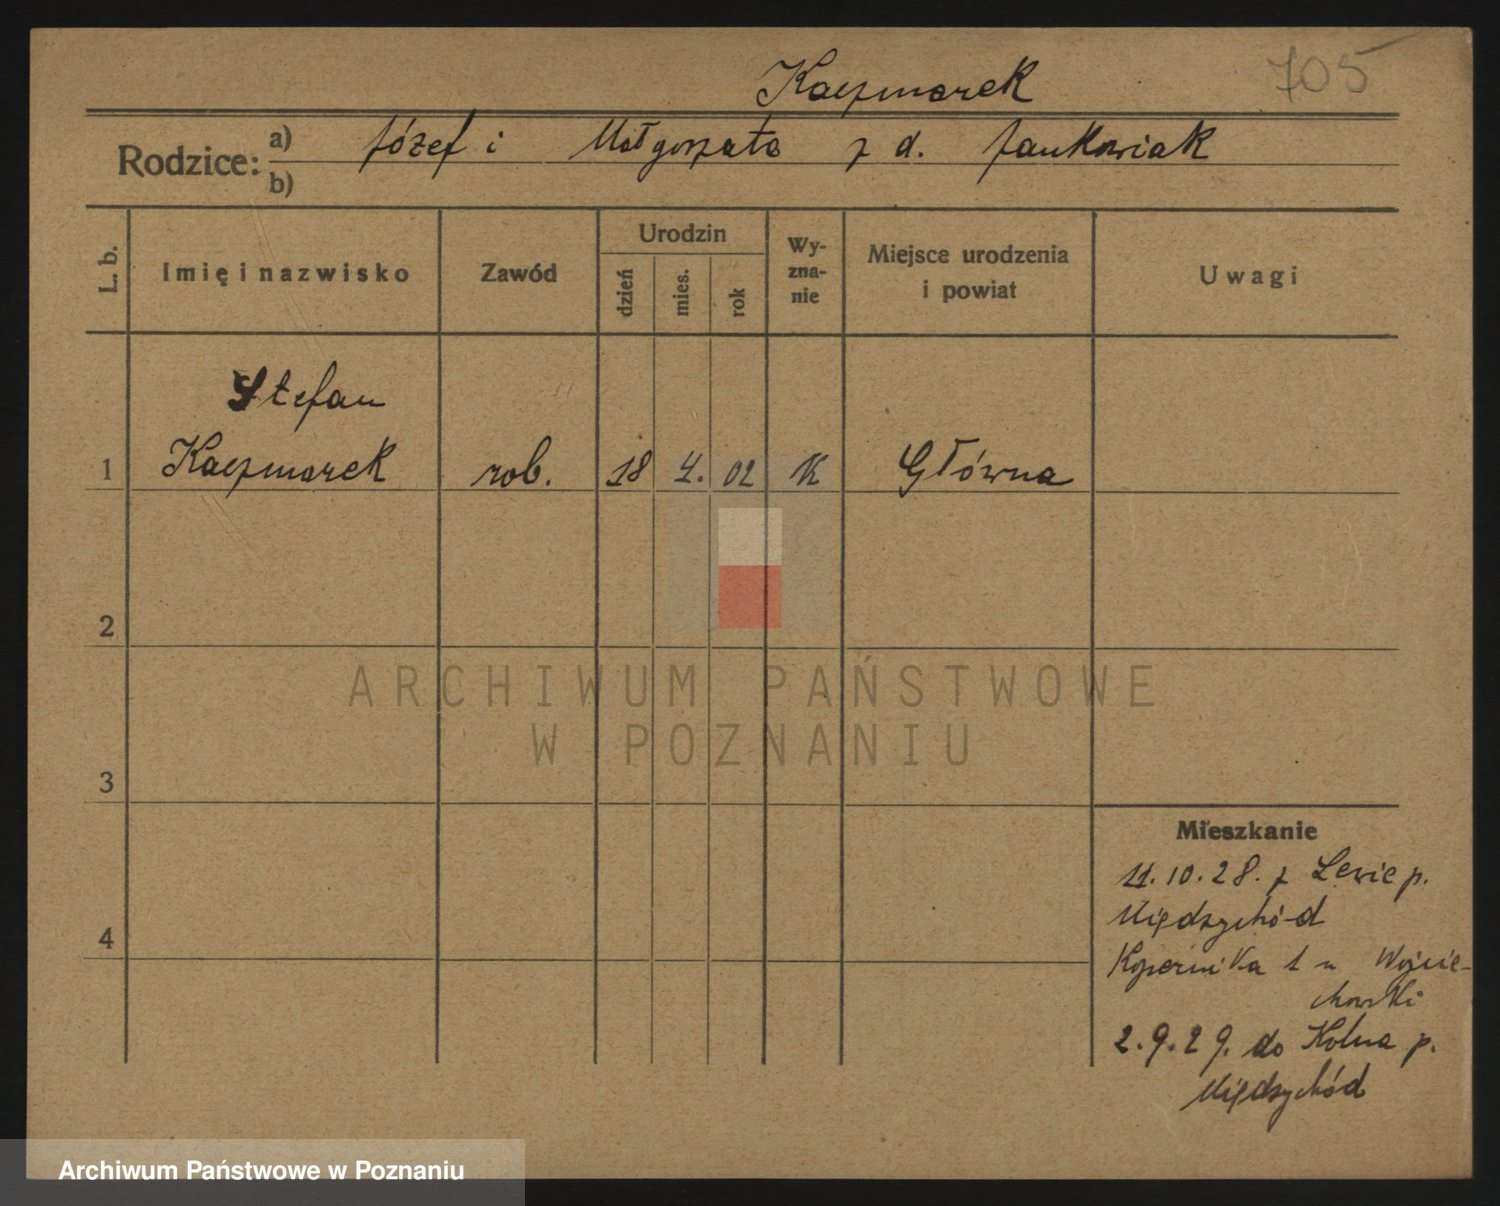 Kaczmarek 705
Rodzice: a) Józef i Małgorzata z d. Jankowiak
b)
L. b. Imię i nazwisko Zawód Urodzin dzień mies. rok Wy-zna-nie Miejsce urodzenia i powiat Uwagi
Stefan
1 Kaczmarek rob. 18 4. 02 K Główna
2
ARCHIWUM PAŃSTWOWE
W POZNANIU
3
Mieszkanie
11.10.28. z Lewic p.
Międzychód
4
Kopernika 1 u Wojcie-
chowski
2.9.29. do Kolna p.
Międzychód
Archiwum Państwowe w Poznaniu